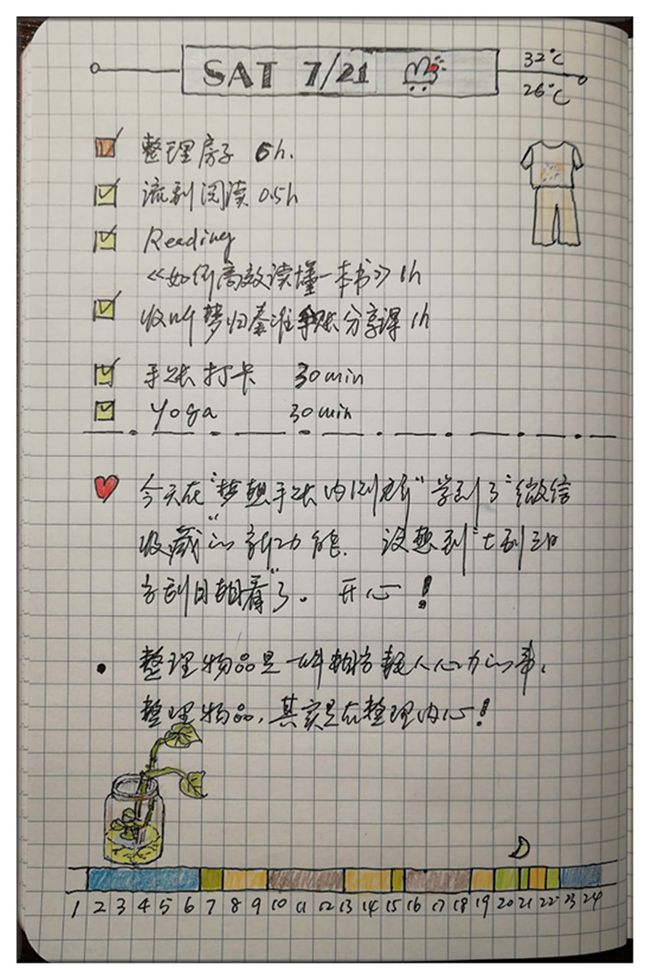 SAT 7/21
32°C
26°C
整理房子 6h.
流利阅读 0.5h
Reading
《如何高效读懂一本书》1h
收听梦归秦淮手账分享课 1h
手账打卡 30min
Yoga 30min
今天在"梦想手账内训班"学到了"微信
收藏"的新功能. 没想到"士别三日
当刮目相看"了。开心!
整理物品是一件相当耗人心力的事,
整理物品,其实是在整理内心!
1 2 3 4 5 6 7 8 9 10 11 12 13 14 15 16 17 18 19 20 21 22 23 24